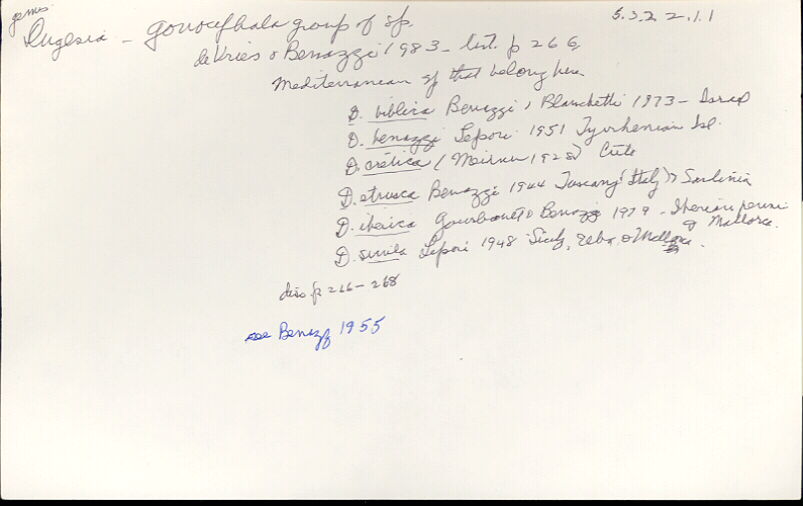 genus
5.3.2.2.1.1
Dugesia - gonocephala group of sp.
deVries & Benazzi 1983 - list. p 266.
Mediterranean sp that belong here
D. biblica Benazzi & Blanchetti 1973 - Israel
D. benazzi Lepori 1951 Tyrrhenian Isl.
D. cretica (Meixner 1928) Crete
D. etrusca Benazzi 1944 Tuscany (Italy) & Sardinia
D. iberica Gourbault & Benazzi 1979 - Iberian penin
& Mallorca.
D. sicula Lepori 1948 Sicily, Elba, & Mallorca.
disc p 266-268
see Benazzi 1955